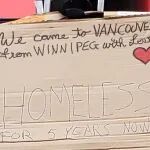 We came to VANCOUVE
from WINNIPEG with Love
HOMELESS
FOR 5 YEARS NOW